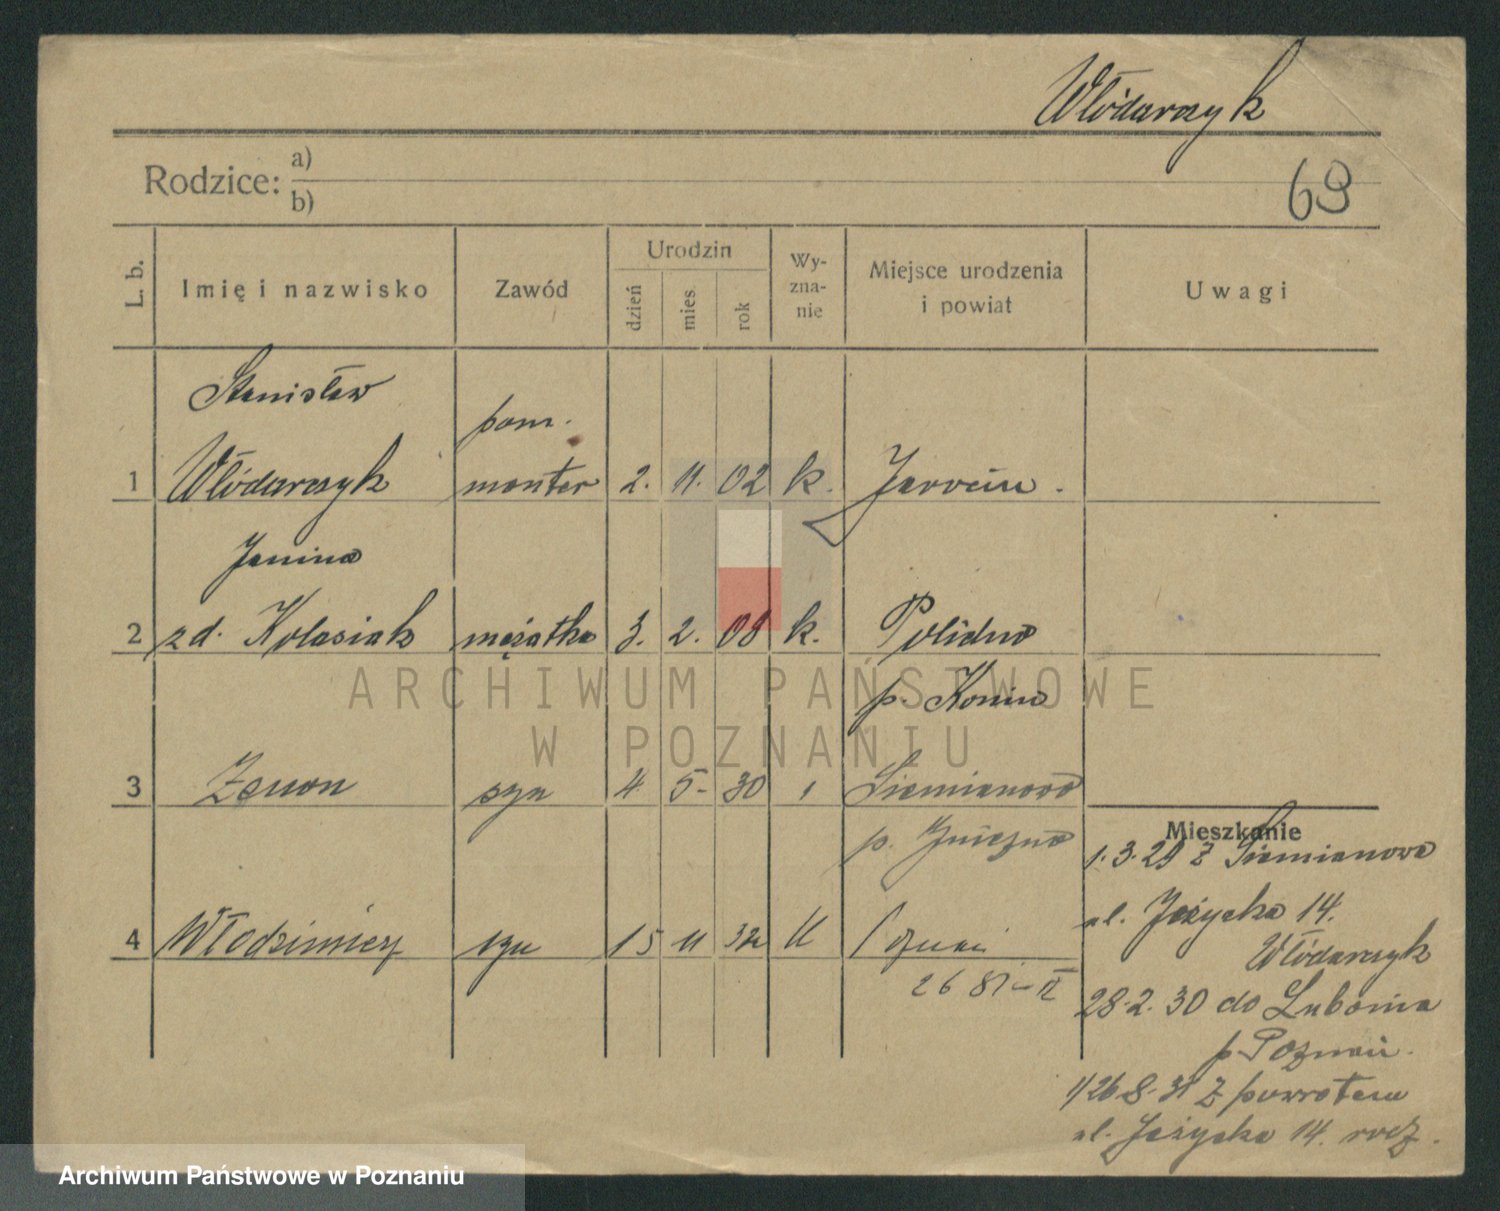 Włódarczyk
69
Rodzice: a)
b)
L. b.
Imię i nazwisko
Zawód
Urodzin
dzień
mies.
rok
Wy-
zna-
nie
Miejsce urodzenia
i powiat
Uwagi
Stanisław
pom.
1 Włódarczyk monter 2. 11. 02 k. Jarocin.
Janina
2 zd. Kolasiak mężatka 3. 2. 08 k.
p. Konin
3 Zenon syn 4 5- 30 Siemianowo
p. Gniezno
4 Włodzimierz syn 15 11 32 Poznań
Mieszkanie
1.3.29 z Siemianowa
ul. Jeżycka 14.
Włódarczyk
28.2.30 do Lubonia
p. Poznań.
26.8.31 z powrotem
ul. Jeżycka 14.
ARCHIWUM PAŃSTWOWE
W POZNANIU
Archiwum Państwowe w Poznaniu